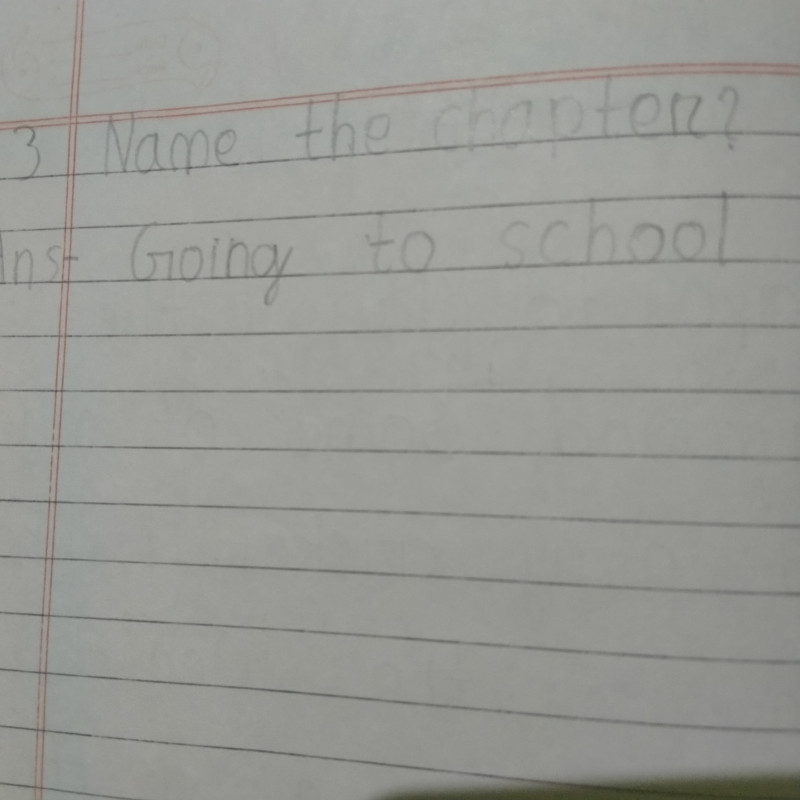 3 Name the chapter?
Ans- Going to school